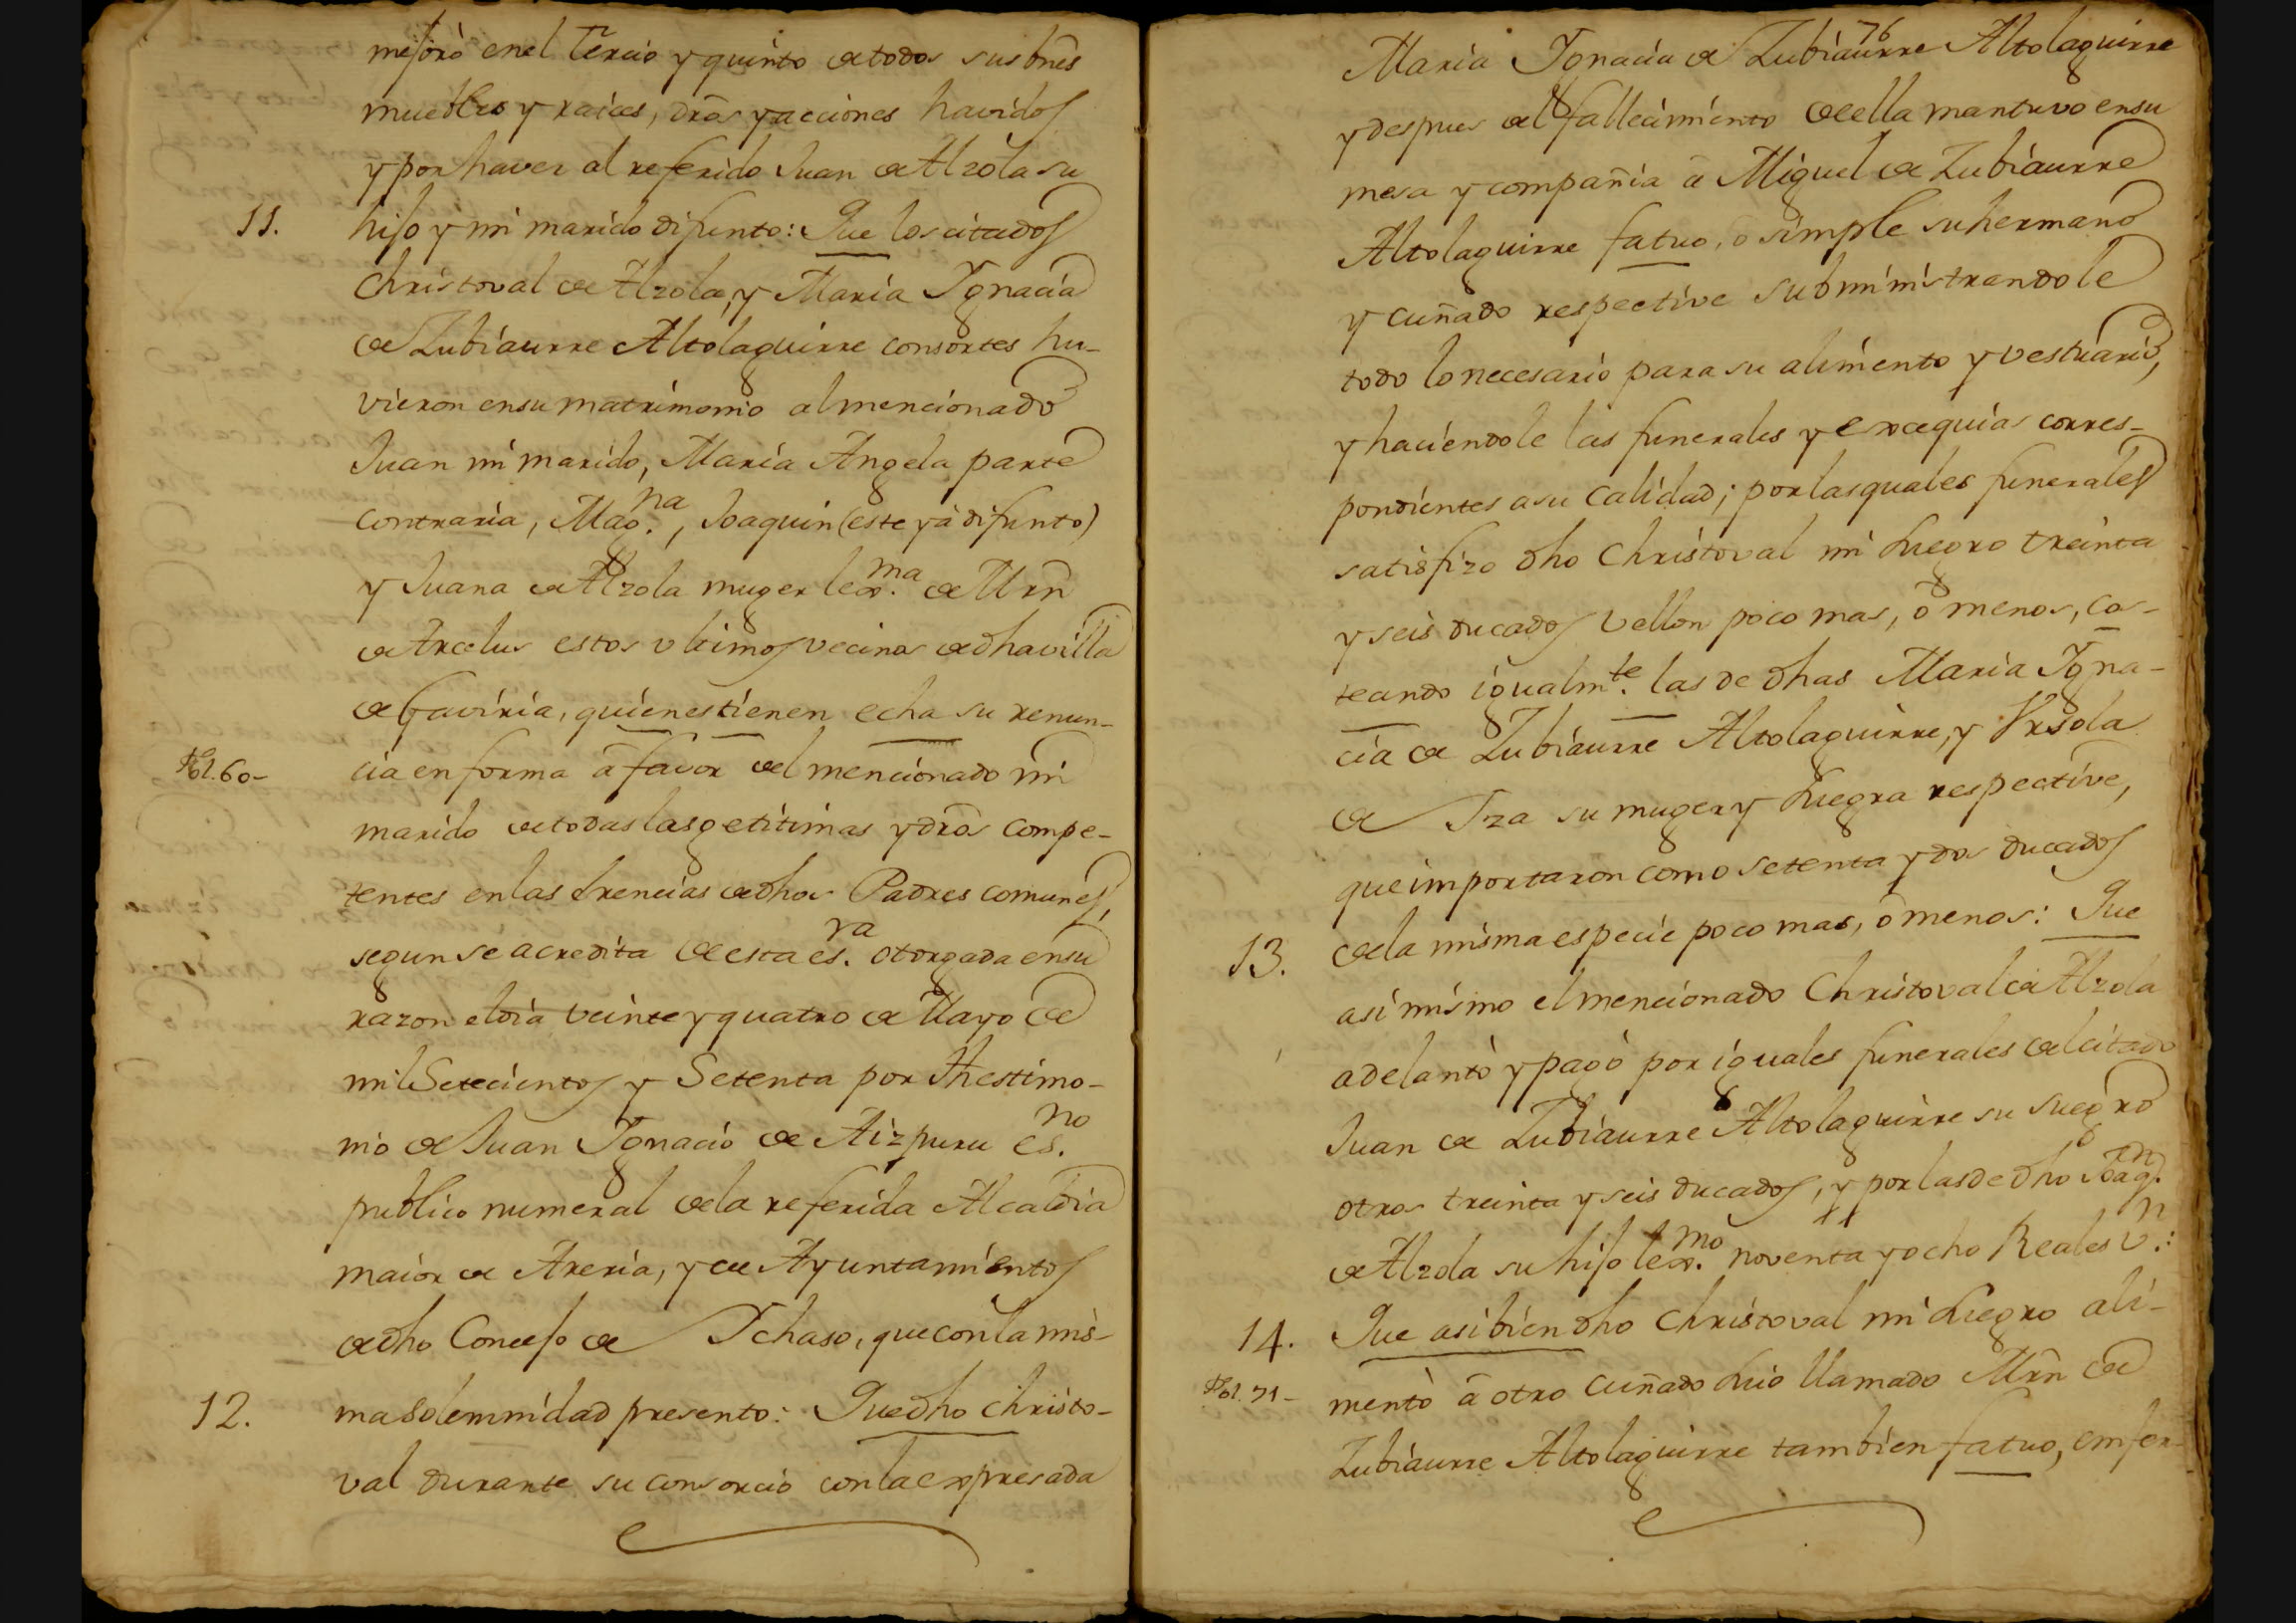 mejorò en el Tercio y quinto de todos sus bnẽs
muebles y raices, drõs y acciones havidos
y por haver al referido Juan de Alzola su
11. hijo y mi marido difunto: Que los citados
Christoval de Alzola, y Maria Ygnacia
de Zubiaurre Altolaguirre consortes hu-
vieron en su matrimonio al mencionado
Juan mi marido, Maria Angela parte
contraria, Mag.na, Joaquin (este yà difunto)
y Juana de Alzola muger lex.ma de Mrñ
de Arcelus estos ultimos vecinos de dha villa
de Gaviria, quienes tienen echa su renun-
Fol. 60- cia en forma â favor del mencionado mi
marido de todas las getitimas y drõs compe-
tentes en las hrencias de dhos Padres comunes,
segun se acredita de esta es.ra otorgada en su
razon el dia veinte y quatro de Mayo de
mil Setecientos y Setenta por thestimo-
nio de Juan Ygnacio de Aizpuru es.no
publico numeral de la referida Alcaldia
maior de Areria, y de Ayuntamientos
de dho Concejo de Ychaso, que con la mis-
12. ma Solemnidad presento: Que dho Christo-
val durante su consorcio con la expresada
76
Maria Ygnacia de Zubiaurre Altolaguirre
y despues del fallecimiento de ella mantuvo en su
mesa y compañia â Miguel de Zubiaurre
Altolaguirre fatuo, o simple su hermano
y cuñado respective subministrandole
todo lo necesario para su alimento y vestuario,
y haciendole las funerales y excequias corres-
pondientes a su calidad; por las quales funerales
satisfizo dho Christoval mi suegro treinta
y seis ducados vellon poco mas, ô menos, cos-
teando igualm.te las de dhas Maria Ygna-
cia de Zubiaurre Altolaguirre, y Vrsola
de Yza su muger y suegra respective,
que importaron como setenta y dos ducados
13. de la misma especie poco mas, ô menos: Que
asi mismo el mencionado Christoval de Alzola
adelantò y pagò por iguales funerales del citado
Juan de Zubiaurre Altolaguirre su suegro
otros treinta y seis ducados, y por las de dho Joaq.n
de Alzola su hijo lex.mo noventa y ocho Reales v.n:
14. Que asi bien dho Christoval mi suegro ali-
Fol. 71- mentò â otro cuñado suio llamado Mrñ de
Zubiaurre Altolaguirre tambien fatuo, enfer-